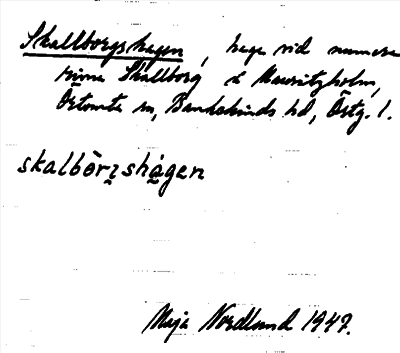 Skallborgshagen, hage vid numera
rivna Skallborg å Mauritzholm,
Örtomta sn, Bankekinds hd, Östg. l.
skalbòrʒshágen
Maja Nordlund 1947.